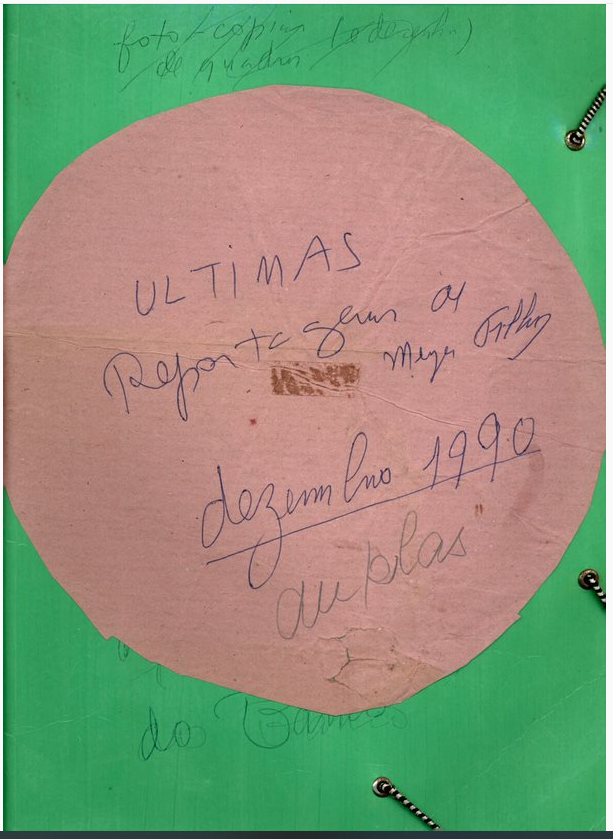 foto-cópias
de quadros
ULTIMAS
Reportagens de
Meyer Filho
dezembro 1990
duplas
dos